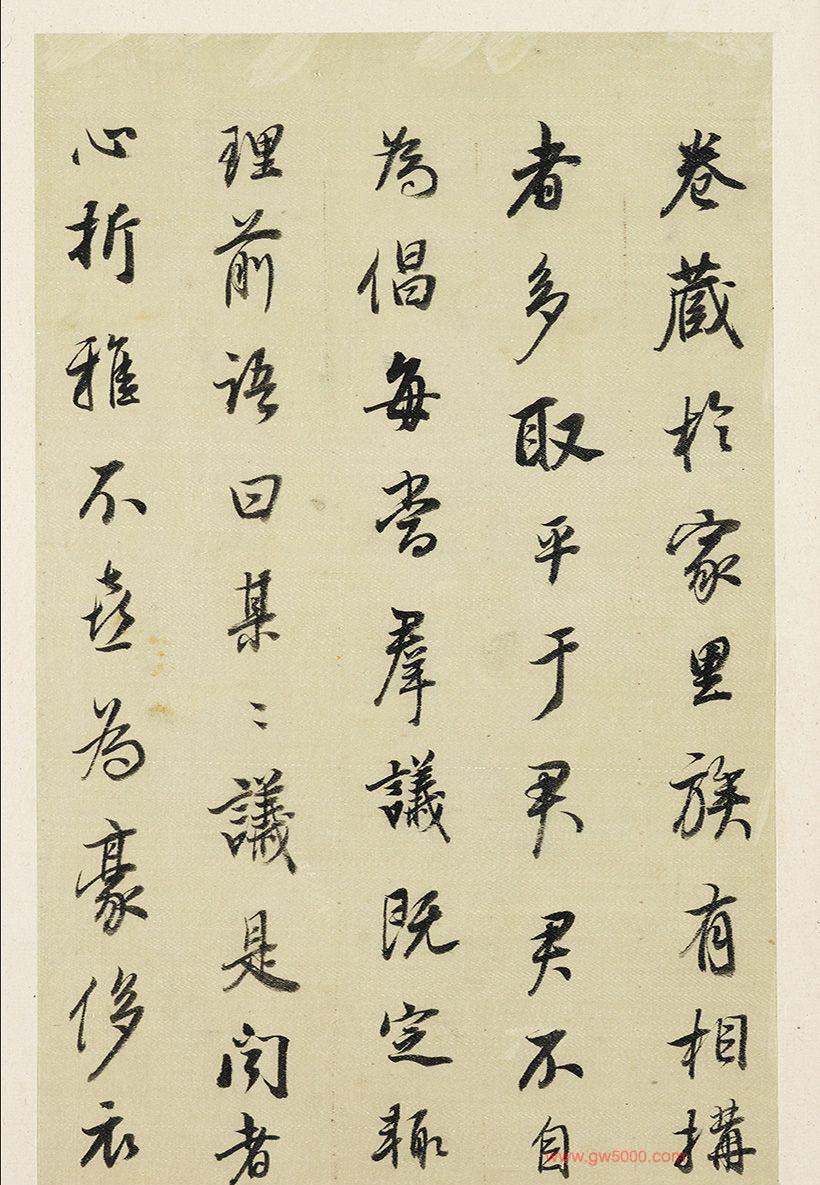 卷藏於家里族有相搆
者多取平于君君不自
為倡每嘗羣議既定輒
理前語曰某〻議是聞者
心折雅不喜為豪侈衣
www.gw5000.com